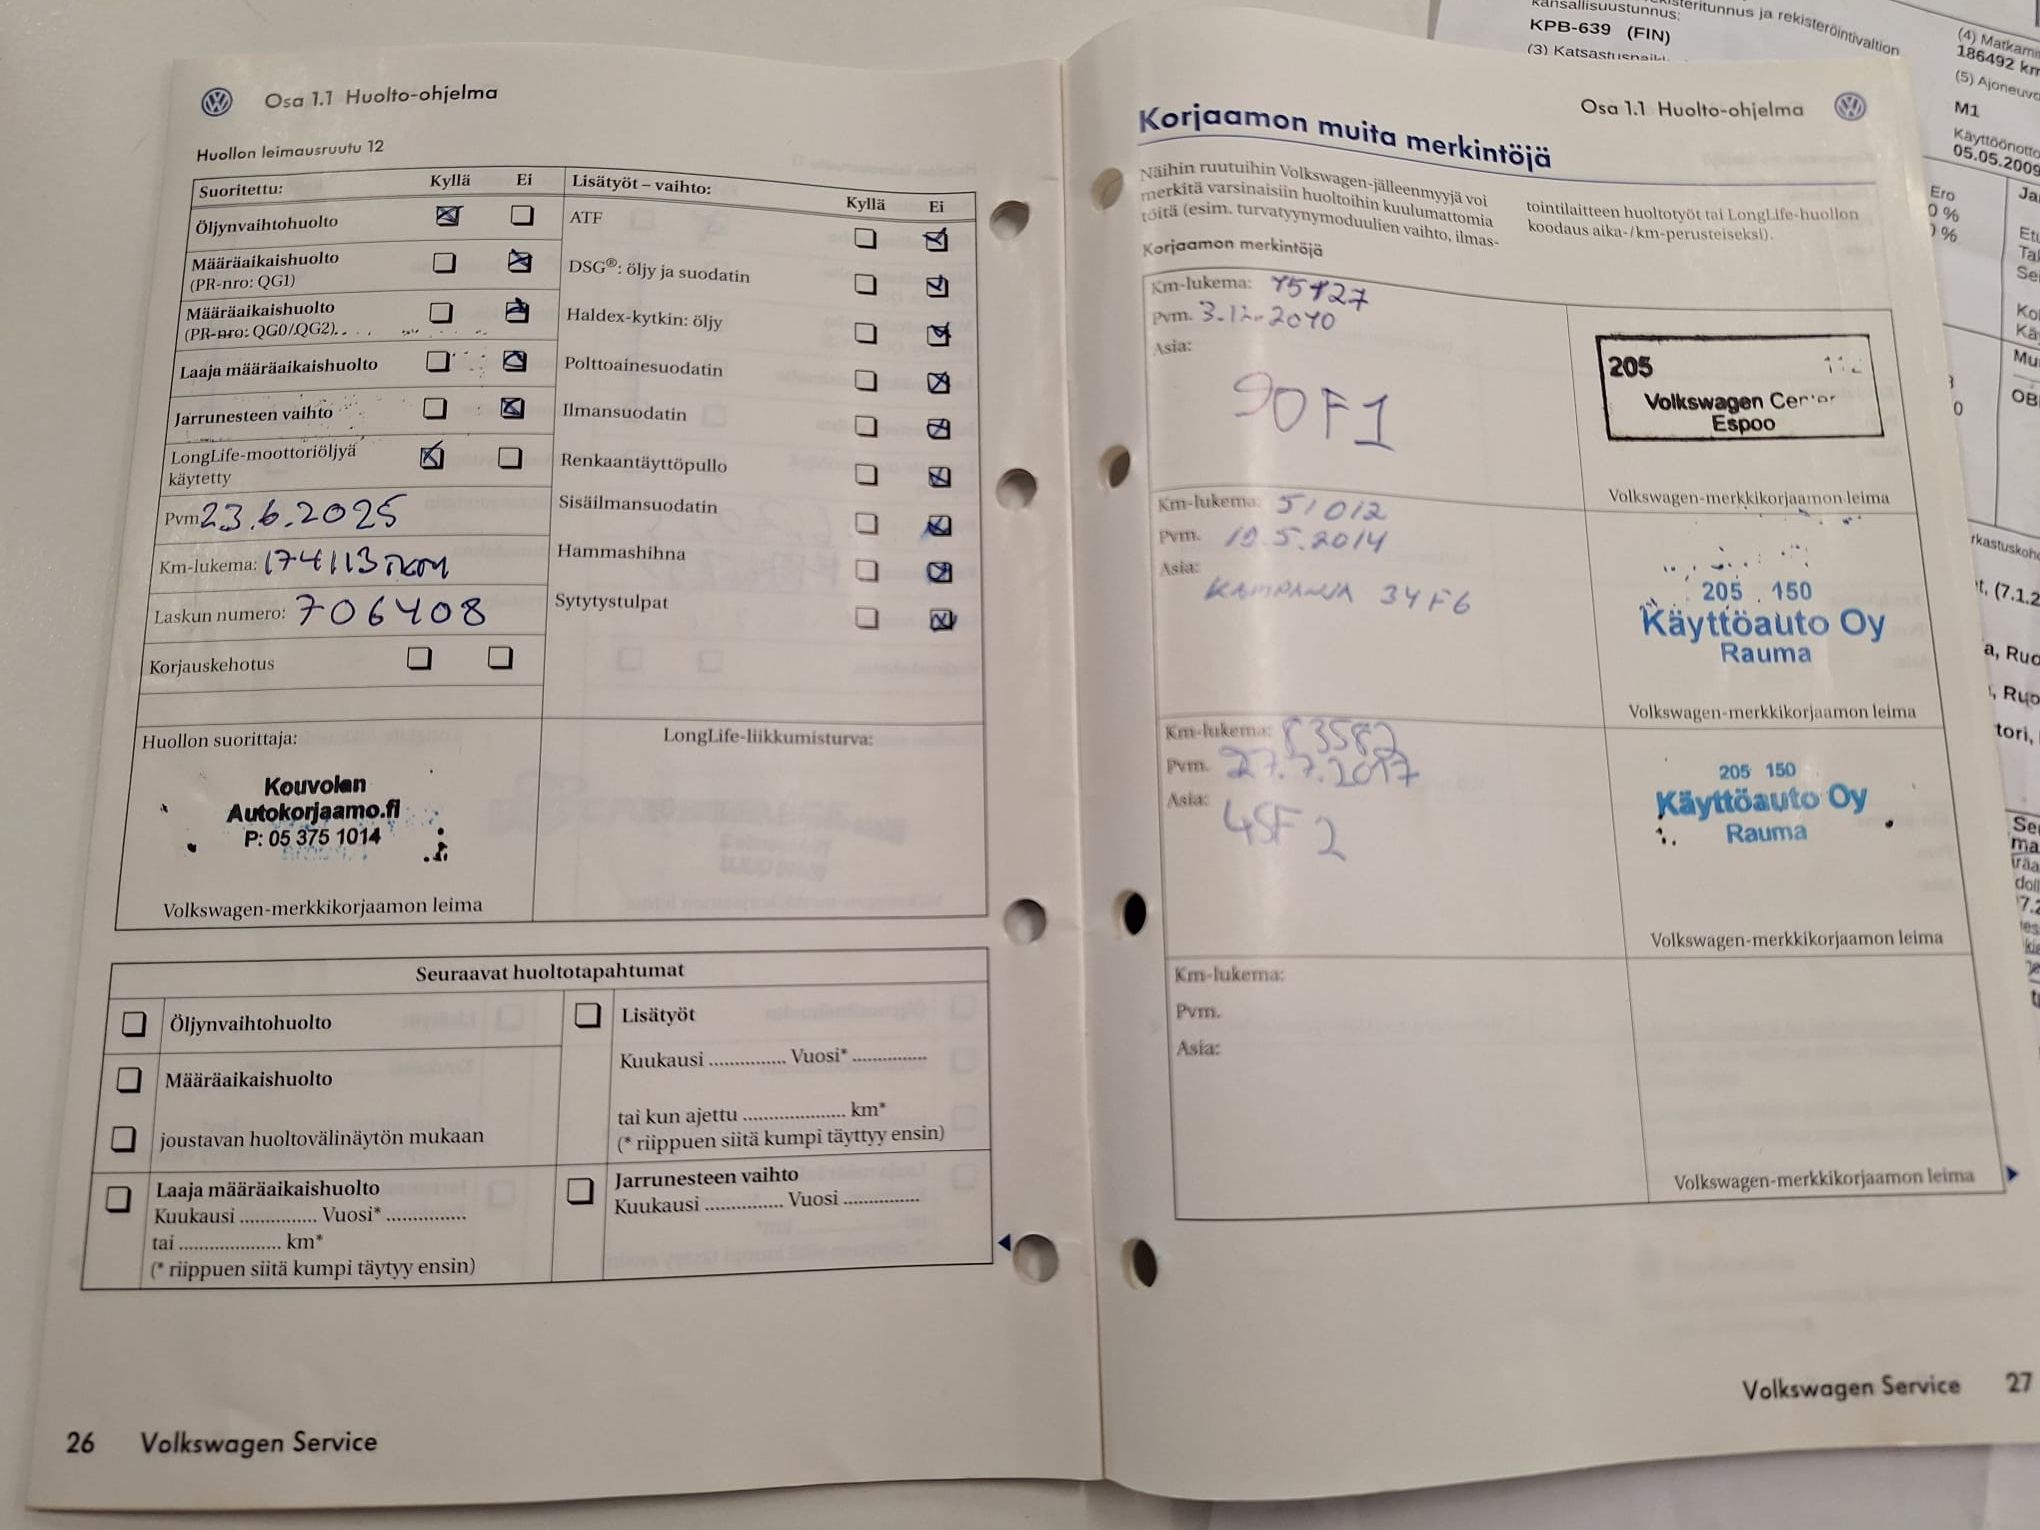 Osa 1.1 Huolto-ohjelma
Huollon leimausruutu 12
Suoritettu: Kyllä Ei
Öljynvaihtohuolto
Määräaikaishuolto
(PR-nro: QG1)
Määräaikaishuolto
(PR-nro: QG0/QG2)
Laaja määräaikaishuolto
Jarrunesteen vaihto
LongLife-moottoriöljyä
käytetty
Pvm 23.6.2025
Km-lukema: 174113
Laskun numero: 706408
Korjauskehotus
Lisätyöt – vaihto:
Kyllä Ei
ATF
DSG®: öljy ja suodatin
Haldex-kytkin: öljy
Polttoainesuodatin
Ilmansuodatin
Renkaantäyttöpullo
Sisäilmansuodatin
Hammashihna
Sytytystulpat
Huollon suorittaja:
Kouvolan
Autokorjaamo.fi
P: 05 375 1014
Volkswagen-merkkikorjaamon leima
LongLife-liikkumisturva:
Seuraavat huoltotapahtumat
Öljynvaihtohuolto
Määräaikaishuolto
joustavan huoltovälinäytön mukaan
Laaja määräaikaishuolto
Kuukausi ............... Vuosi* ...............
tai .................... km*
(* riippuen siitä kumpi täytyy ensin)
Lisätyöt
Kuukausi ............... Vuosi* ...............
tai kun ajettu .................... km*
(* riippuen siitä kumpi täyttyy ensin)
Jarrunesteen vaihto
Kuukausi ............... Vuosi ...............
26 Volkswagen Service
Osa 1.1 Huolto-ohjelma
Korjaamon muita merkintöjä
Näihin ruutuihin Volkswagen-jälleenmyyjä voi
merkitä varsinaisiin huoltoihin kuulumattomia
töitä (esim. turvatyynymoduulien vaihto, ilmas-
tointilaitteen huoltotyöt tai LongLife-huollon
koodaus aika-/km-perusteiseksi).
Korjaamon merkintöjä
Km-lukema:
Pvm. 3.12.2010
Asia:
90F1
205
Volkswagen Center
Espoo
Volkswagen-merkkikorjaamon leima
Km-lukema: 51012
Pvm. 19.5.2014
Asia:
KAMPANJA 34F6
205 150
Käyttöauto Oy
Rauma
Volkswagen-merkkikorjaamon leima
Km-lukema: 83582
Pvm. 27.7.2017
Asia:
45F2
205 150
Käyttöauto Oy
Rauma
Volkswagen-merkkikorjaamon leima
Km-lukema:
Pvm.
Asia:
Volkswagen-merkkikorjaamon leima
Volkswagen Service 27
kansallisuustunnus:
KPB-639 (FIN)
186492 km
M1
05.05.2009
Ero